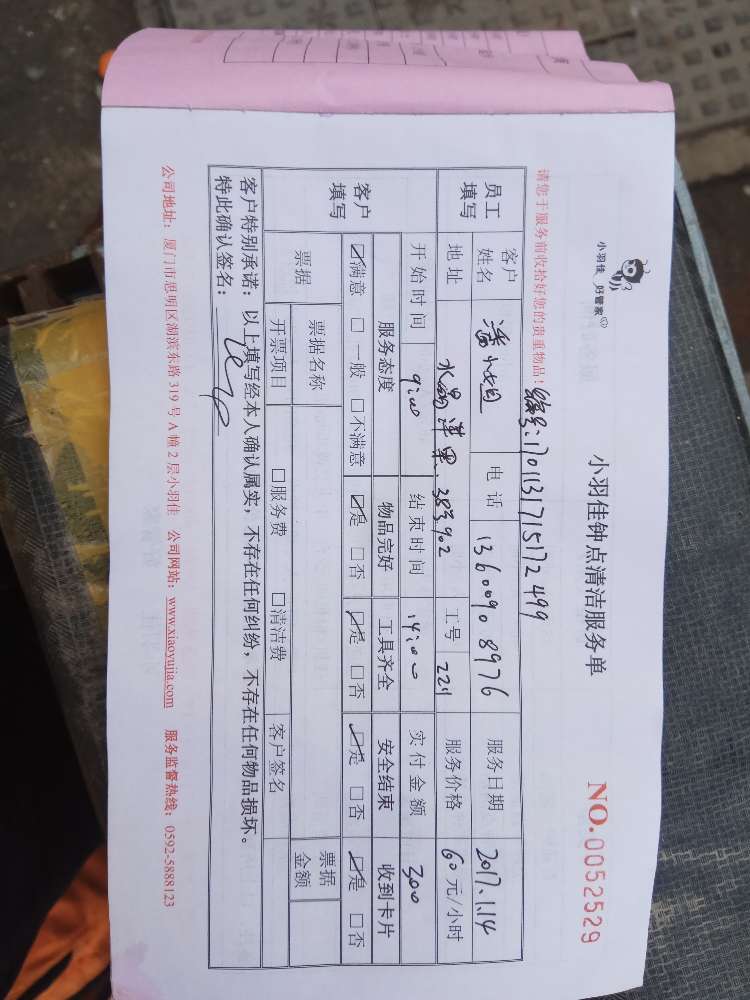 小羽佳 好管家
小羽佳钟点清洁服务单
NO.0052529
编号:1701131715172499
请您于服务前收拾好您的贵重物品!
员工填写 客户姓名 潘小姐 电话 13600908976 服务日期 2017.1.14
地址 水晶湾 383.902 工号 221 服务价格 60元/小时
开始时间 9:00 结束时间 14:00 实付金额 300
客户填写 服务态度 物品完好 工具齐全 安全结束 收到卡片
☑满意 □一般 □不满意 ☑是 □否 ☑是 □否 ☑是 □否 ☑是 □否
票据 票据名称 票据金额
开票项目 □服务费 □清洁费 客户签名
客户特别承诺:以上填写经本人确认属实,不存在任何纠纷,不存在任何物品损坏。
特此确认签名:
公司地址:厦门市思明区湖滨东路319号A幢2层小羽佳 公司网站:www.xiaoyujia.com 服务监督热线:0592-5888123